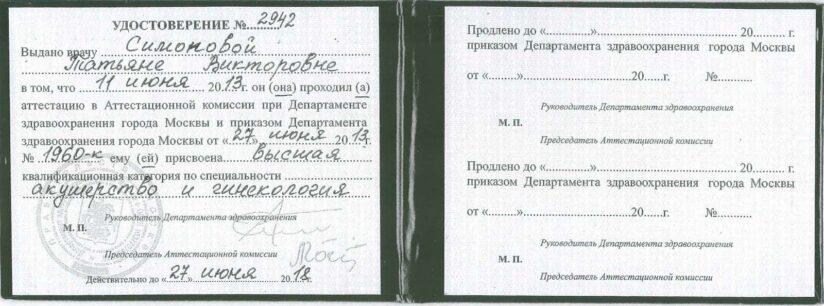 УДОСТОВЕРЕНИЕ № 2942
Выдано врачу Симоновой
Татьяне Викторовне
в том, что 11 июня 2013г. он (она) проходил (а)
аттестацию в Аттестационной комиссии при Департаменте
здравоохранения города Москвы и приказом Департамента
здравоохранения города Москвы от «27» июня 2013г.
№ 1960-к ему (ей) присвоена высшая
квалификационная категория по специальности
акушерство и гинекология
Руководитель Департамента здравоохранения
М. П.
Председатель Аттестационной комиссии
Действительно до «27» июня 2018
Продлено до «..........»................................... 20....... г.
приказом Департамента здравоохранения города Москвы
от «.........».....................................20......г. №...........
Руководитель Департамента здравоохранения
М. П.
Председатель Аттестационной комиссии
Продлено до «..........»................................... 20....... г.
приказом Департамента здравоохранения города Москвы
от «.........».....................................20......г. №...........
Руководитель Департамента здравоохранения
М. П.
Председатель Аттестационной комиссии